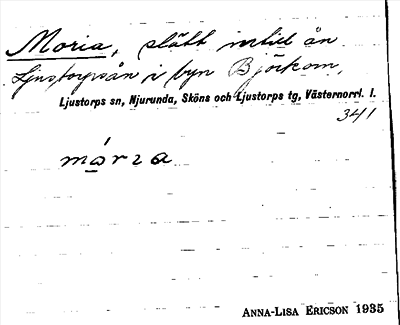 Moria, slätt intill ån
Ljustorpsån i byn Björkom,
Ljustorps sn, Njurunda, Sköns och Ljustorps tg, Västernorrl. l.
341
mo̲rɩa
ANNA-LISA ERICSON 1935